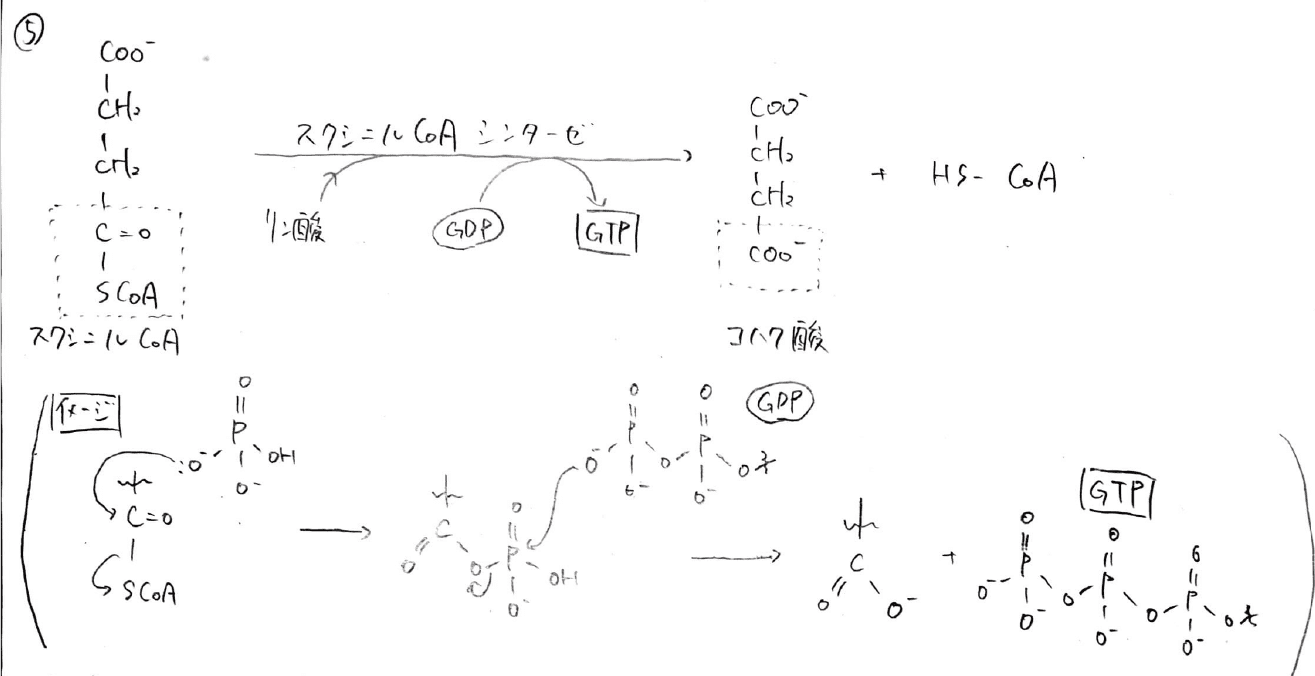 ⑤
COO⁻
CH₂
CH₂
C=O
SCoA
スクシニルCoA
スクシニルCoA シンターゼ
リン酸
GDP
GTP
COO⁻
CH₂
CH₂
COO⁻
コハク酸
+ HS-CoA
イメージ
C=O
SCoA
:O⁻
O
P
OH
O⁻
O
C
O
O
P
OH
O⁻
GDP
O
P
O⁻
O⁻
O
O
P
O⁻
O
C
O
O⁻
+
GTP
O
P
O⁻
O⁻
O
O
P
O⁻
O
O
P
O⁻
O